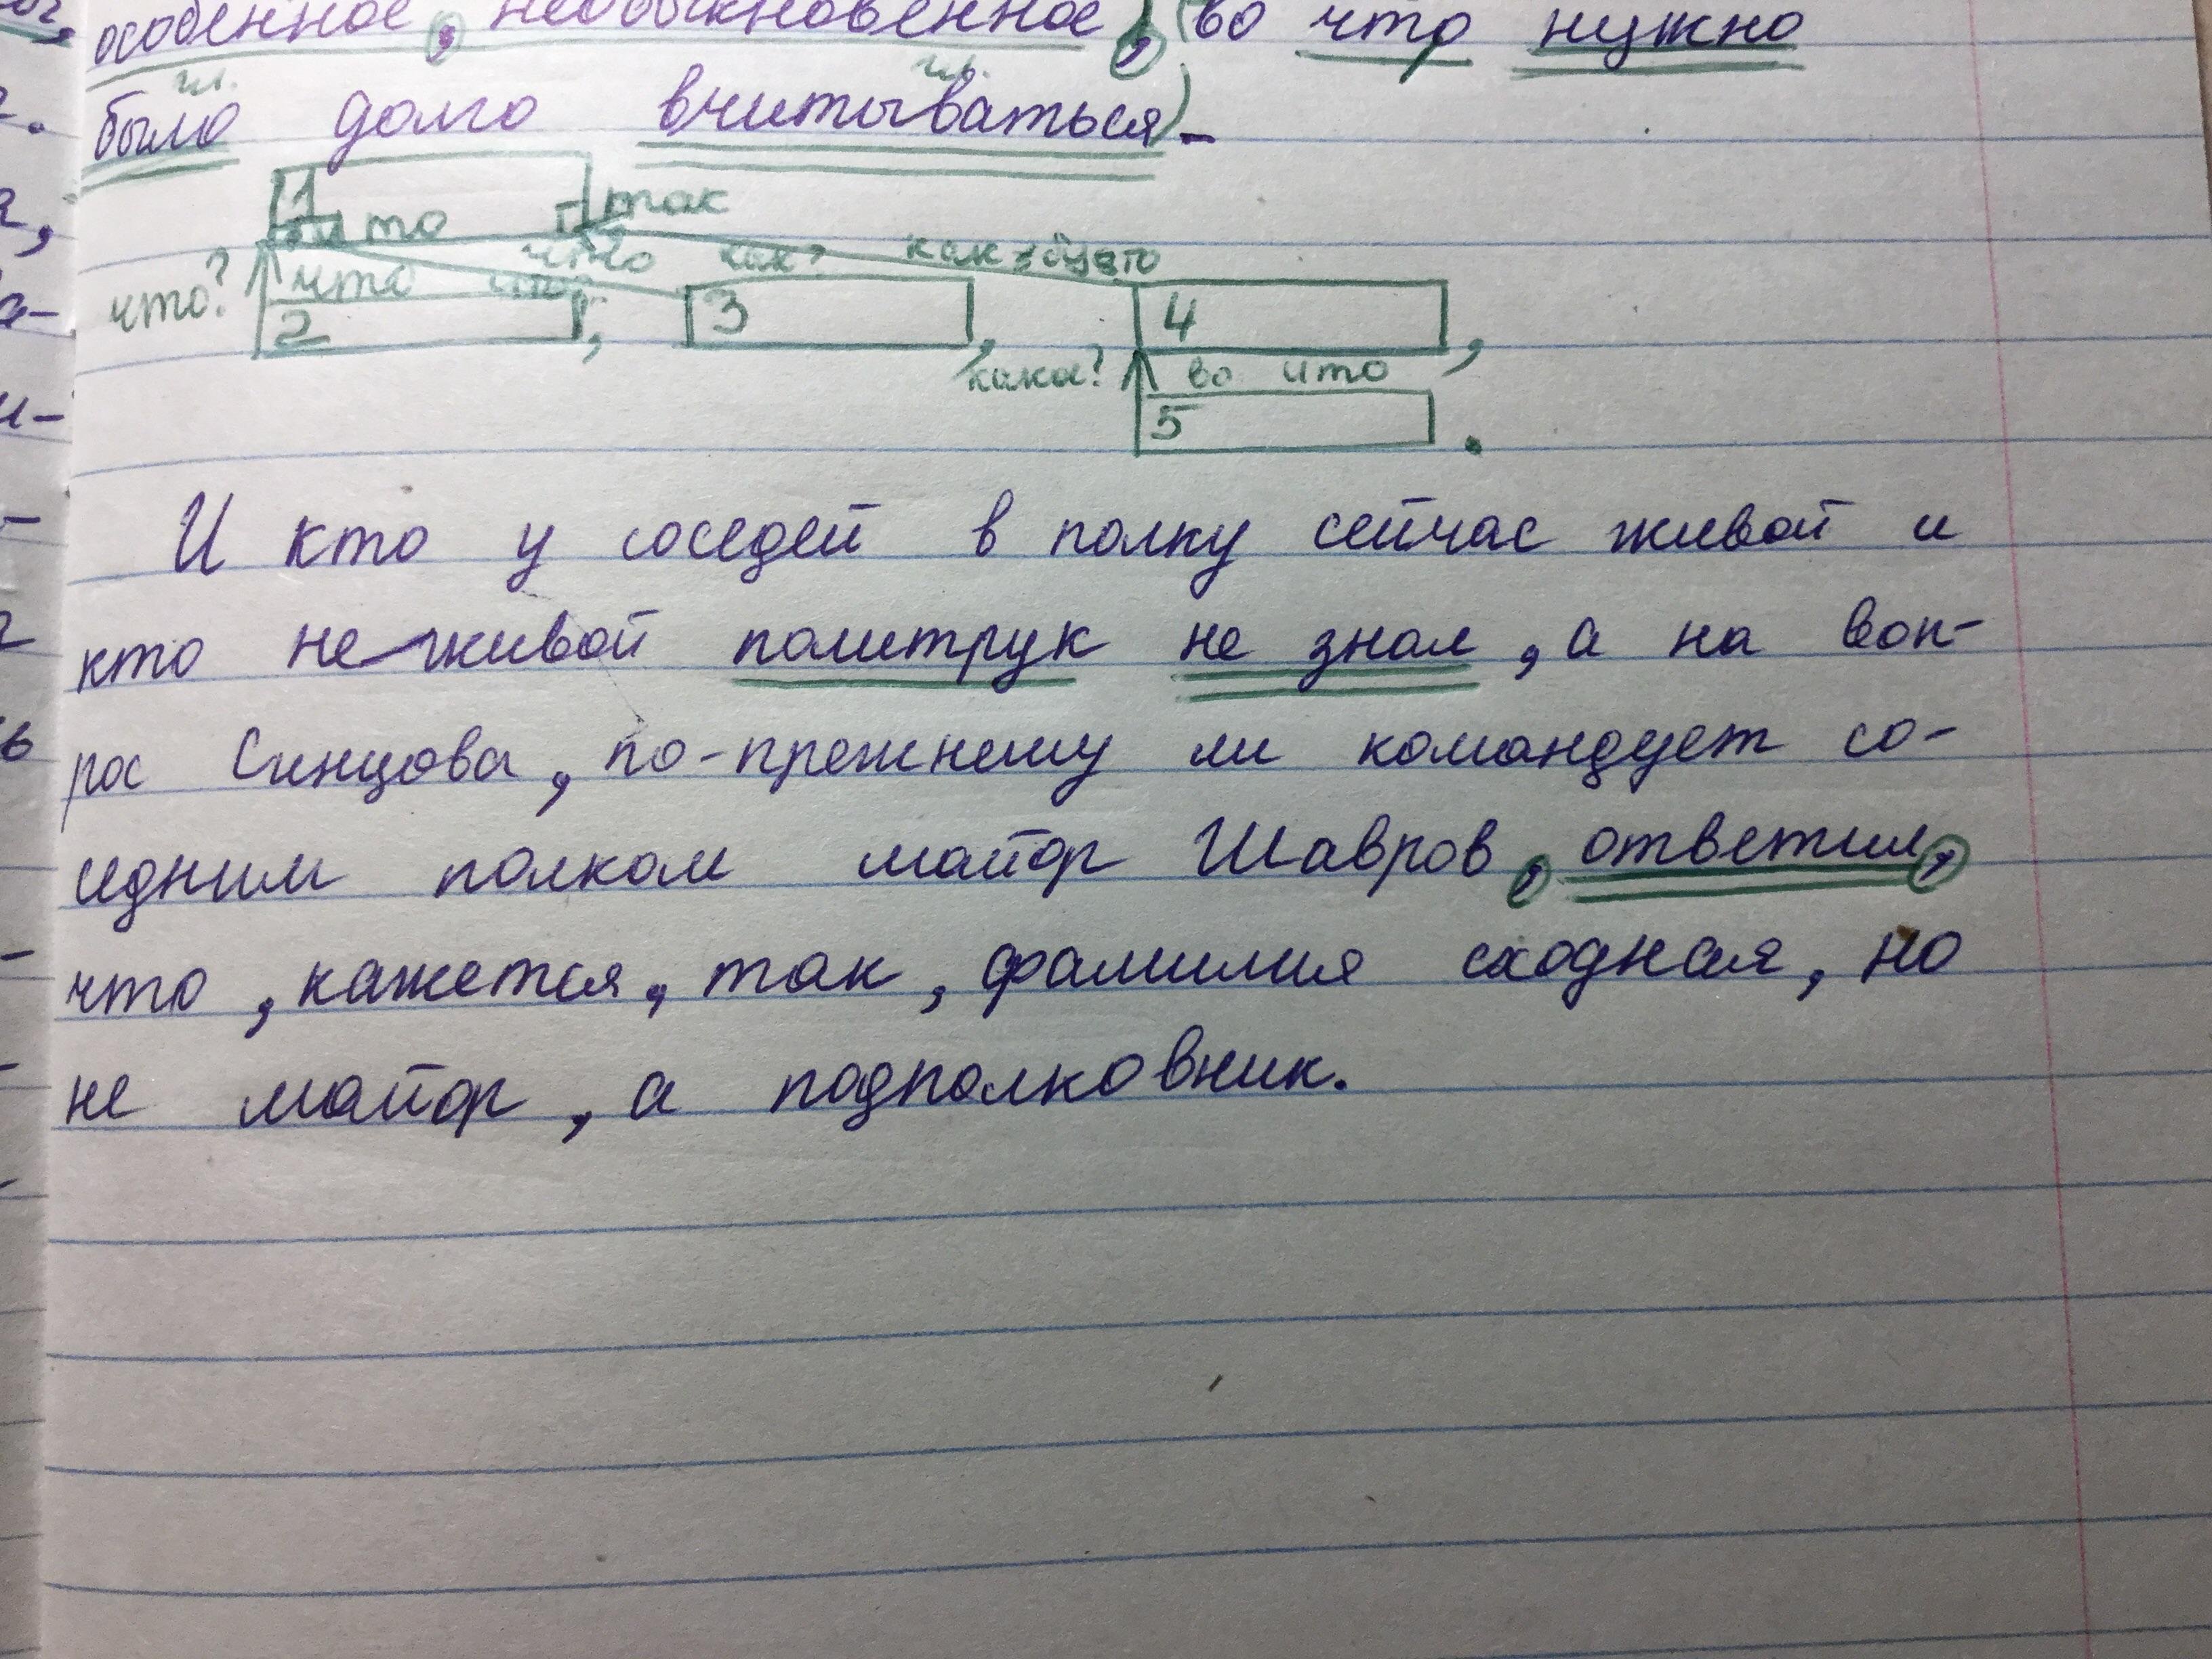 особенное, необыкновенное, (во что нужно
гл. гл.
было долго вчитываться).
1 то так
что? что что как? как будто
2 , 3 , 4 ,
какое? во что
5 .
И кто у соседей в полку сейчас живой и
кто не живой политрук не знал, а на воп-
рос Синцова, по-прежнему ли командует со-
седним полком майор Шавров, ответил,
что, кажется, так, фамилия сходная, но
не майор, а подполковник.